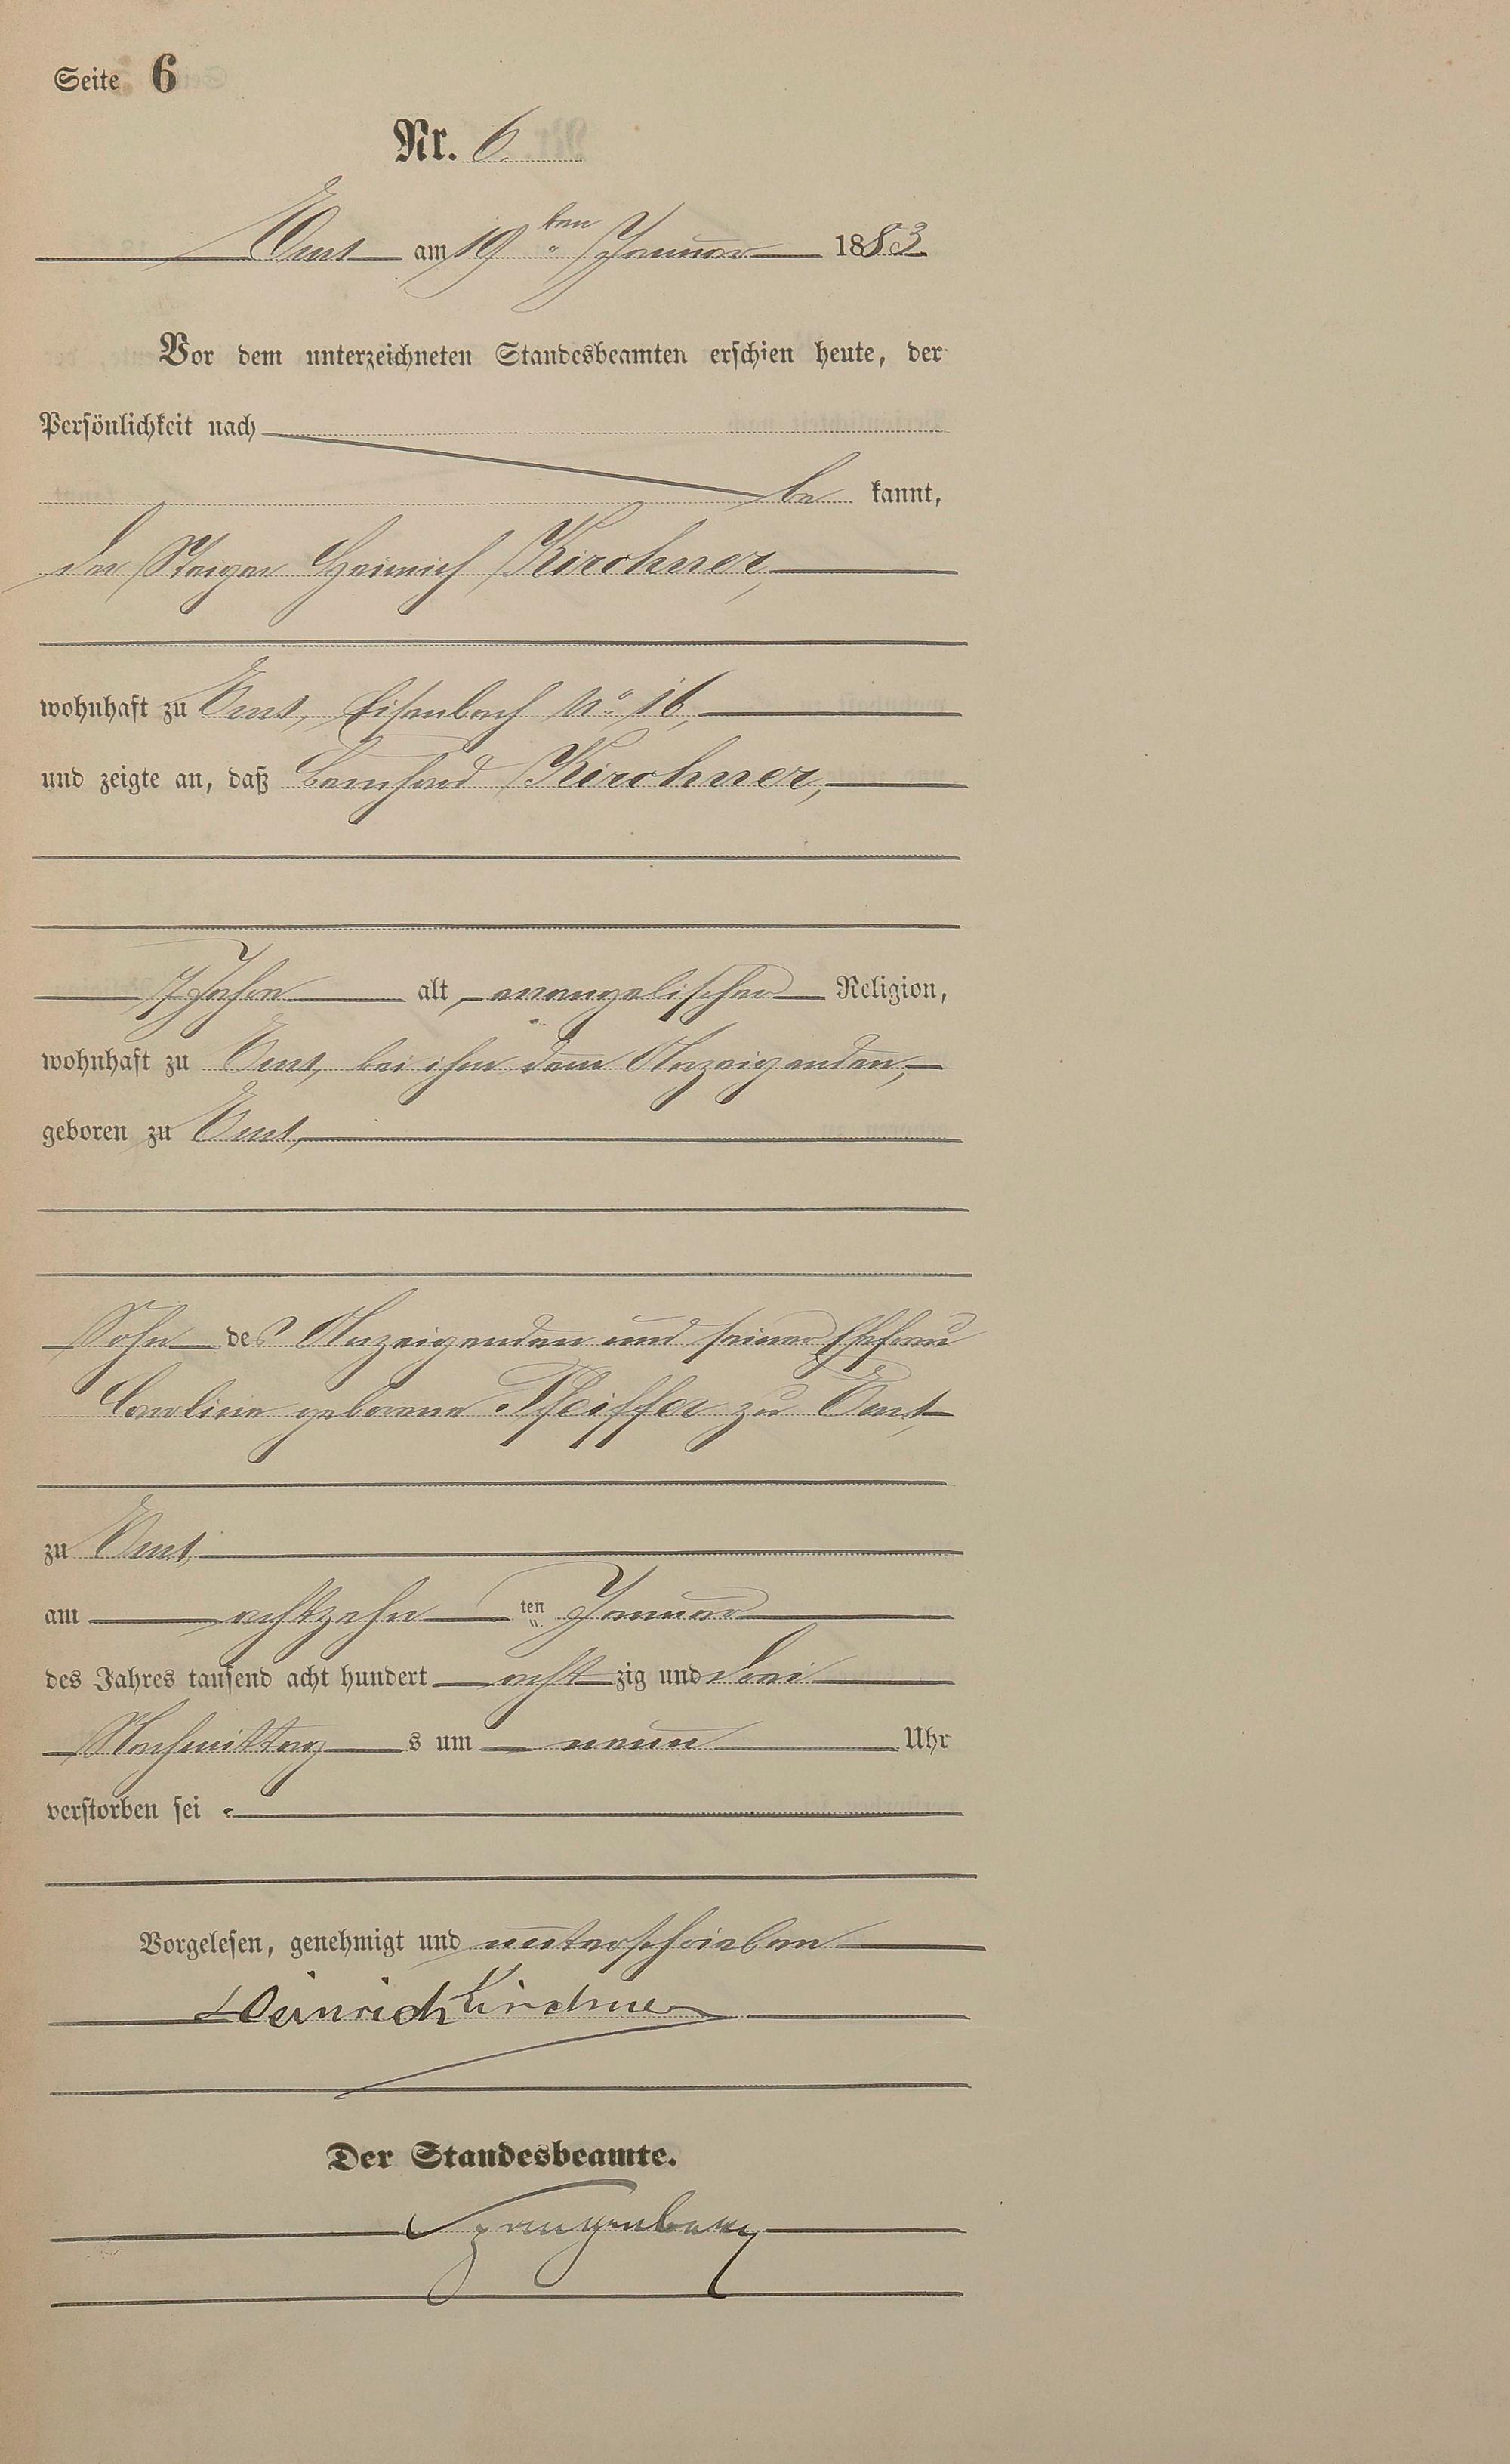 Seite 6
Nr. 6.
Ems am 19ten Januar 1883
Vor dem unterzeichneten Standesbeamten erschien heute, der
Persönlichkeit nach
be kannt,
der Steiger Heinrich Kirchner,
wohnhaft zu Ems, Eisenbach No. 16,
und zeigte an, daß Bernhard Kirchner,
7 Jahre alt, evangelischer Religion,
wohnhaft zu Ems, bei ihm dem Anzeigenden,
geboren zu Ems,
Sohn des Anzeigenden und seiner Ehefrau
Caroline geborene Pfeiffer zu Ems,
zu Ems,
am achtzehn ten Januar
des Jahres tausend acht hundert acht zig und drei
Nachmittag s um neun Uhr
verstorben sei.
Vorgelesen, genehmigt und unterschrieben
Heinrich Kirchner
Der Standesbeamte.
Spangenberg